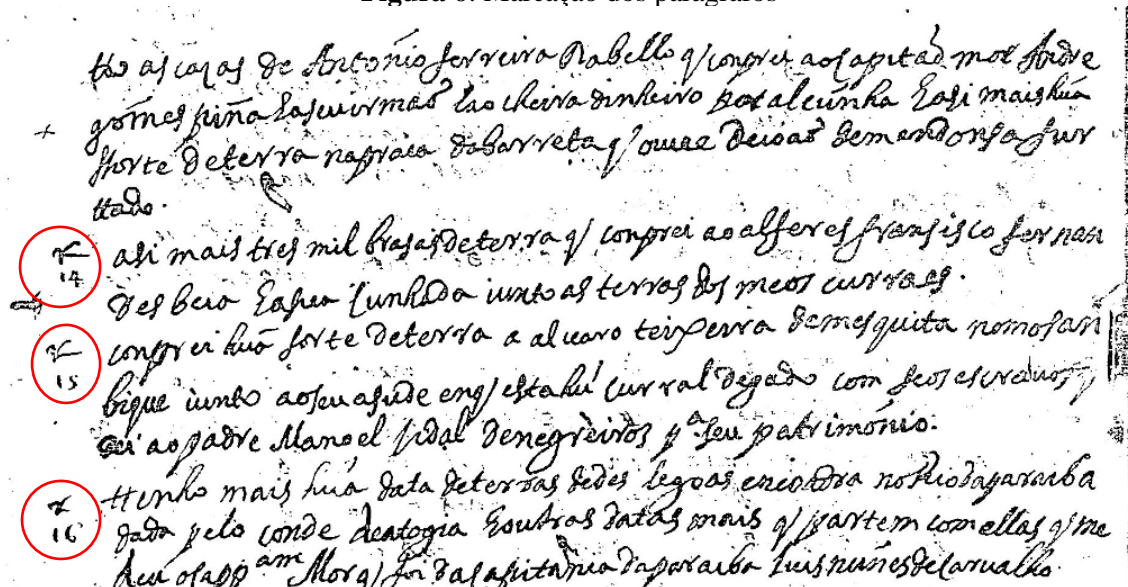 Figura 6: Marcação dos parágrafos
tto as cazas de Antonio ferreira Rabello q conprei ao capitaõ mor Andre
gomes pinã E a sua irmaõ Lao cheira dinheiro por alcunha E asi mais huã
ssorte de terra na praia da barreta q ouue de ioaõ de mendonsa fur
ttado.
14 asi mais tres mil brasas de terra q conprei ao alferes fransisco fernan
des beia E a sua Cunhada iunto as terras dos meos curraes.
15 conprei huã sorte de terra a aluaro teixeira de mesquita no mosan
bique iunto ao seu asude en q esta hũ curral de gado com seos escrauos,
ao padre Manoel vidal de negreiros pª seu património.
16 ttenho mais huã data de terras de des legoas en no Rio da paraiba
dada pelo conde de atogia E outras datas mais q partem com ellas q me
deu o Mor q foi da capitania da paraiba luis nunes de carualho.